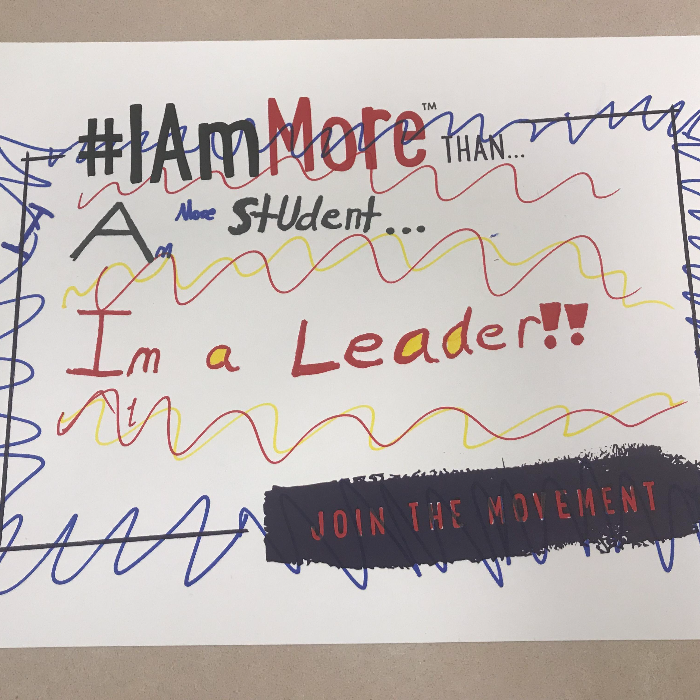 #IAmMore™ THAN...
Am More Student...
Im a Leader!!
JOIN THE MOVEMENT